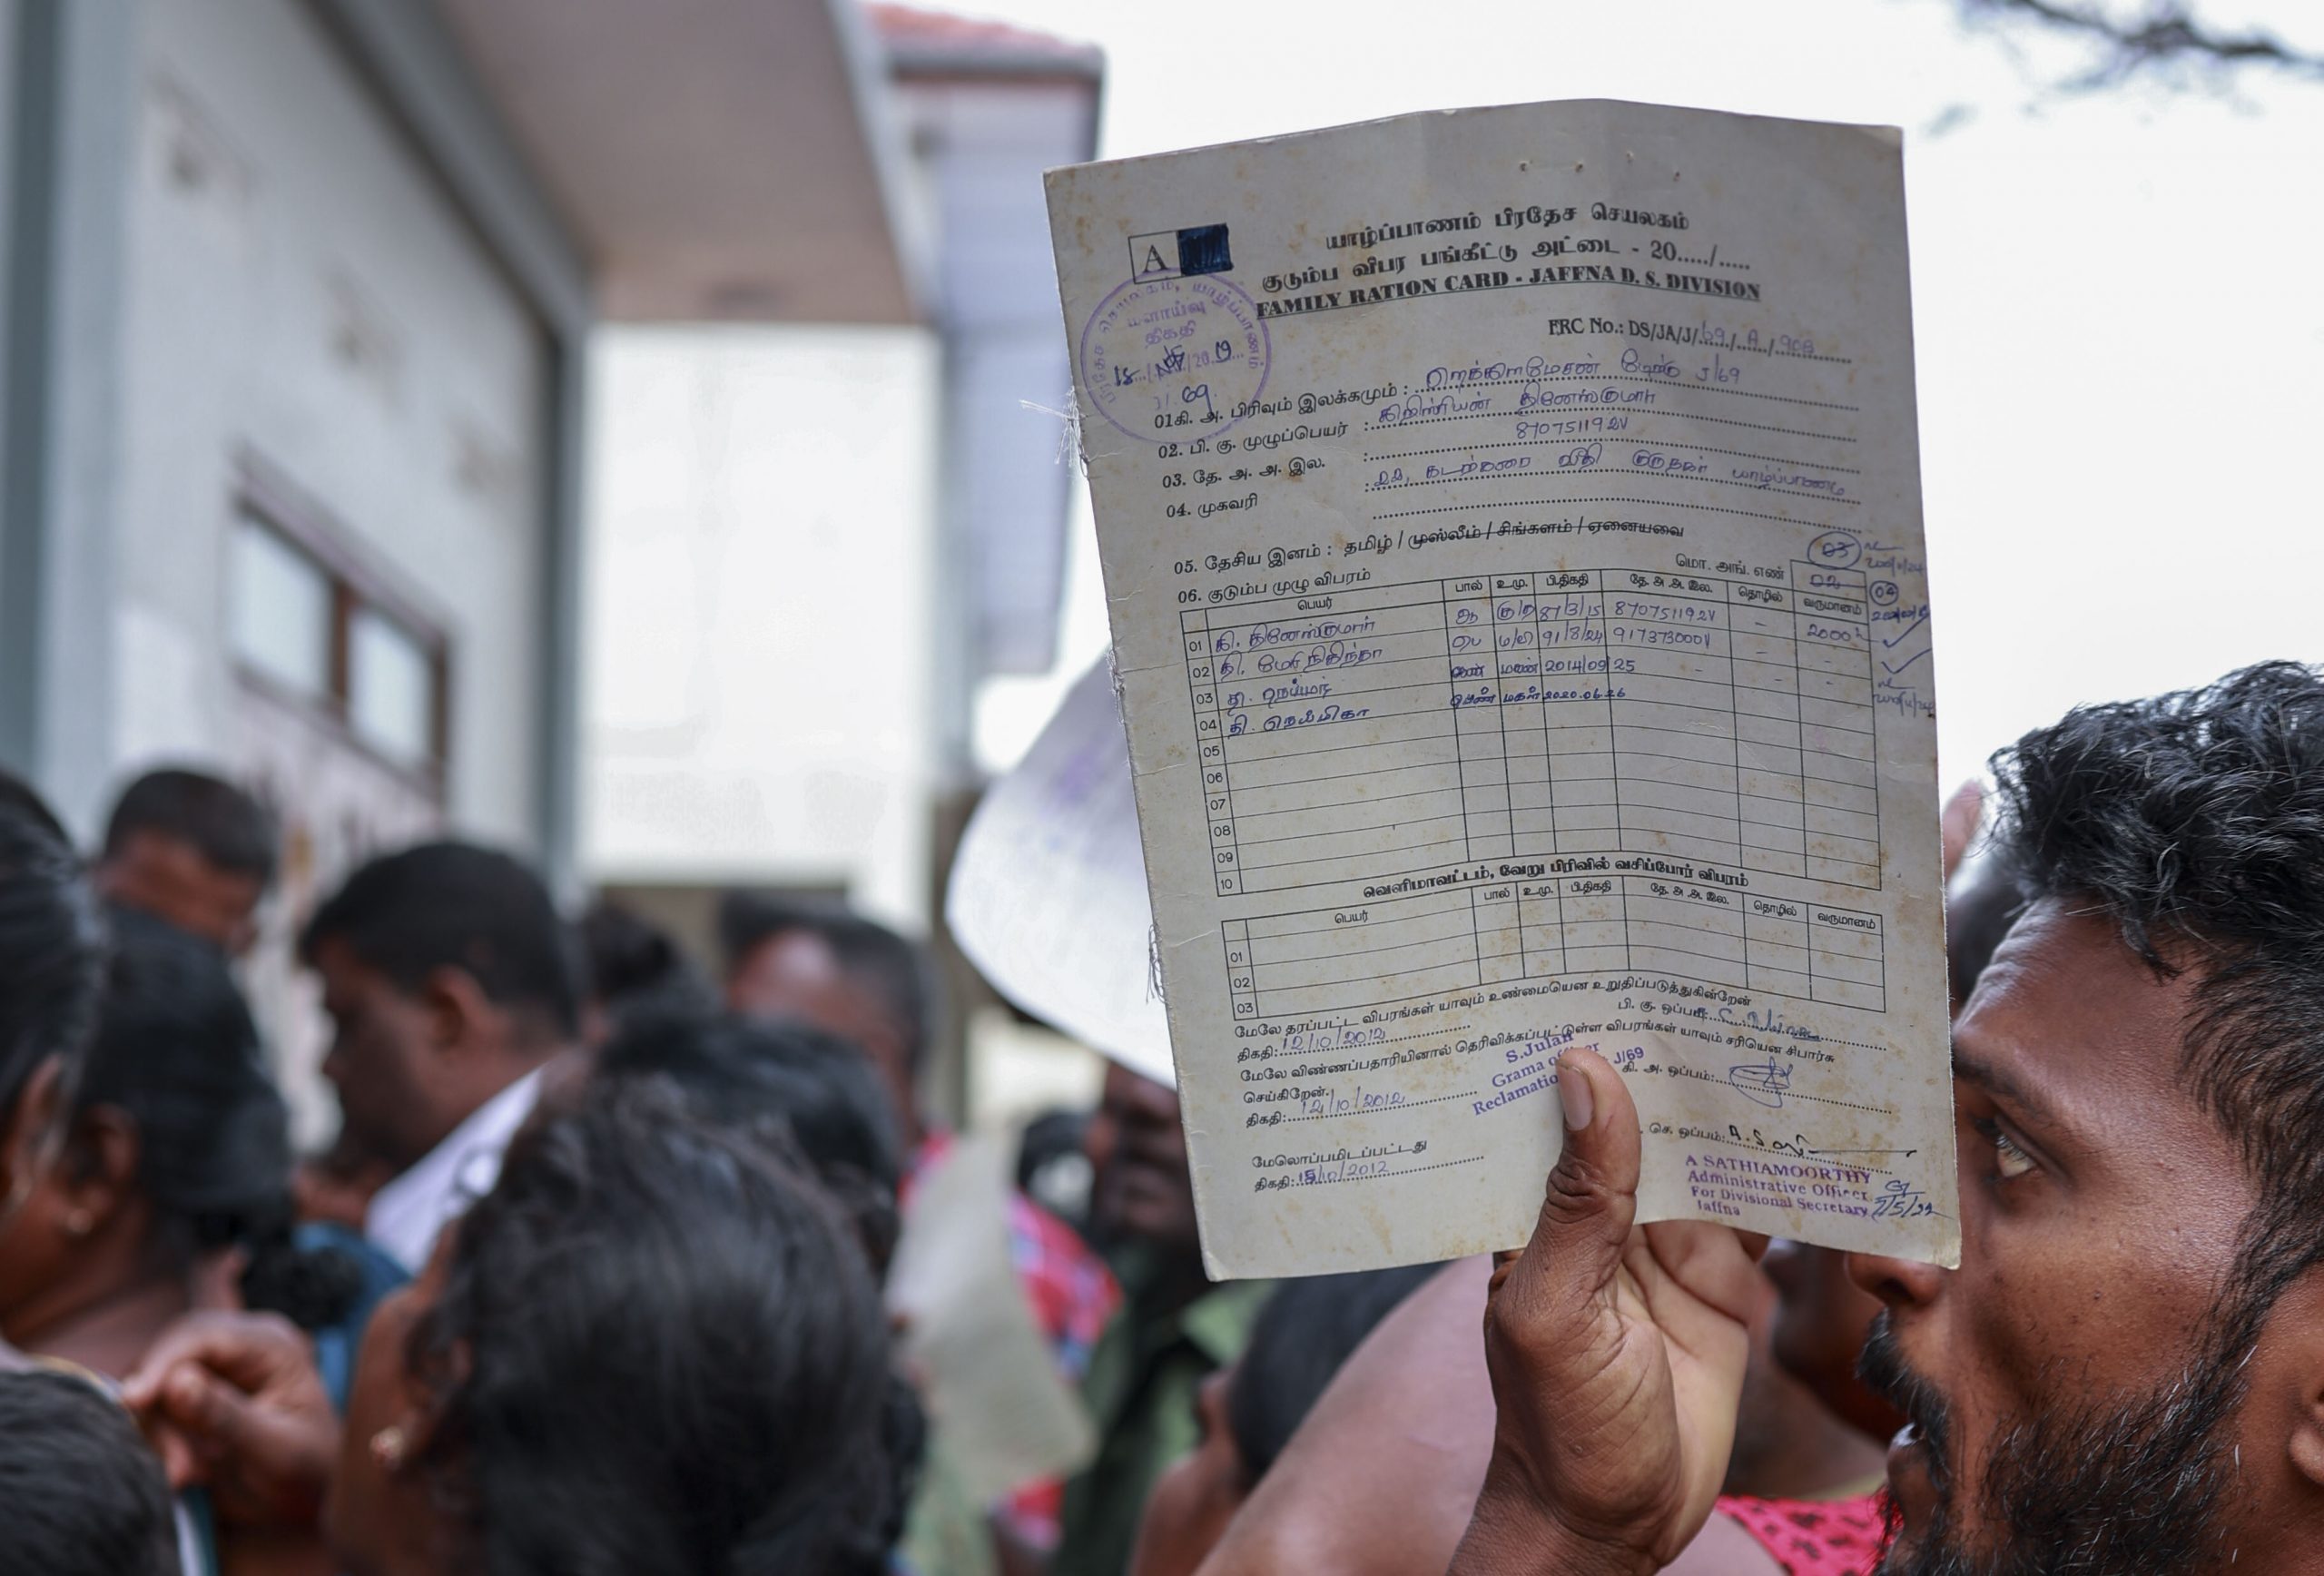 A
யாழ்ப்பாணம் பிரதேச செயலகம்
குடும்ப விபர பங்கீட்டு அட்டை - 20...../.....
FAMILY RATION CARD - JAFFNA D. S. DIVISION
FRC No.: DS/JA/J/69/A/908
பிரதேச செயலகம், யாழ்ப்பாணம்
மீளாய்வு
திகதி
18 20 19
J/ 69
01கி. அ. பிரிவும் இலக்கமும் : J/69
02. பி. கு. முழுப்பெயர் : கிறிஸ்ரியன் தினேஸ்குமார்
03. தே. அ. அ. இல. : 870751192V
04. முகவரி : 22, கடற்கரை வீதி குருநகர் யாழ்ப்பாணம்
05. தேசிய இனம் : தமிழ் / முஸ்லீம் / சிங்களம் / ஏனையவை
06. குடும்ப முழு விபரம் மொ. அங். எண் 02 03
04
பெயர் பால் உ.மு. பி.திகதி தே. அ. அ. இல. தொழில் வருமானம்
01 கி. தினேஸ்குமார் ஆ 87/3/15 870751192V - 2000
02 தி. மேரி நிதிந்தா பெ ம/வி 91/8/24 917373000V - -
03 தி. நெய்மர் மகன் 2014/09/25 - - -
04 தி. பெண் மகள் 2020.06.26
05
06
07
08
09
10
வெளிமாவட்டம், வேறு பிரிவில் வசிப்போர் விபரம்
பெயர் பால் உ.மு. பி.திகதி தே. அ. அ. இல. தொழில் வருமானம்
01
02
03
மேலே தரப்பட்ட விபரங்கள் யாவும் உண்மையென உறுதிப்படுத்துகின்றேன்
திகதி: 12/10/2012 பி. கு. ஒப்பம்:
மேலே விண்ணப்பதாரியினால் தெரிவிக்கப்பட்டுள்ள விபரங்கள் யாவும் சரியென சிபார்சு
செய்கிறேன்.
திகதி: 12/10/2012 கி. அ. ஒப்பம்:
S.Julan
Grama J/69
மேலொப்பமிடப்பட்டது
திகதி: 15/10/2012 செ. ஒப்பம்:
A SATHIAMOORTHY
Administrative Officer
For Divisional Secretary
Jaffna